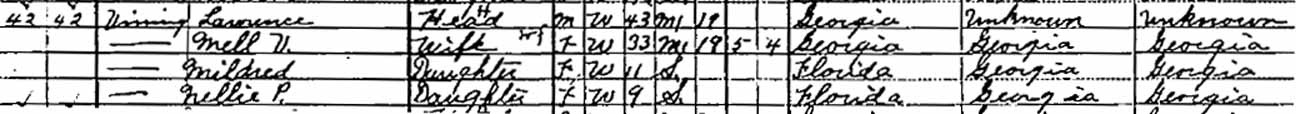 42 42 Vining Lawrence Head M W 43 M1 19 Georgia Unknown Unknown
— Mell V. Wife F W 33 M1 19 5 4 Georgia Georgia Georgia
— Mildred Daughter F W 11 S Florida Georgia Georgia
— Nellie P. Daughter F W 9 S Florida Georgia Georgia